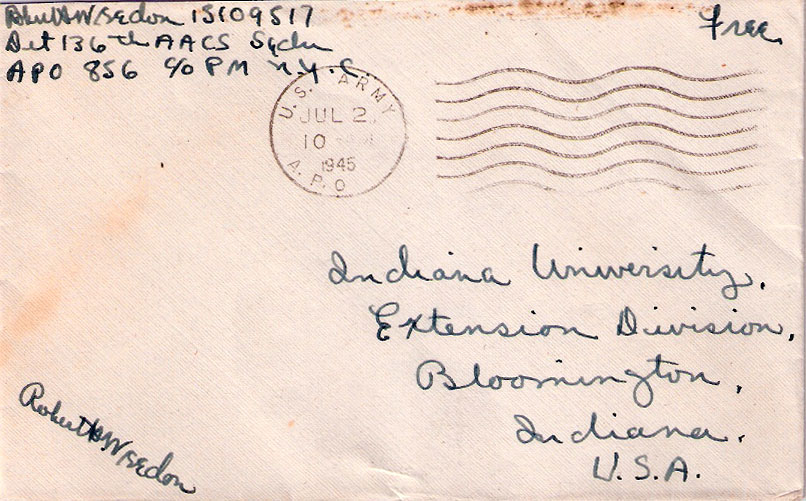 Robert H Wsedon 15109517
Det 136th AACS Sqdn
APO 856 c/o PM N.Y.C.
Free.
U.S. ARMY
JUL 2
10
1945
A.P.O
Indiana University,
Extension Division,
Bloomington,
Indiana.
U.S.A.
Robert H Wsedon